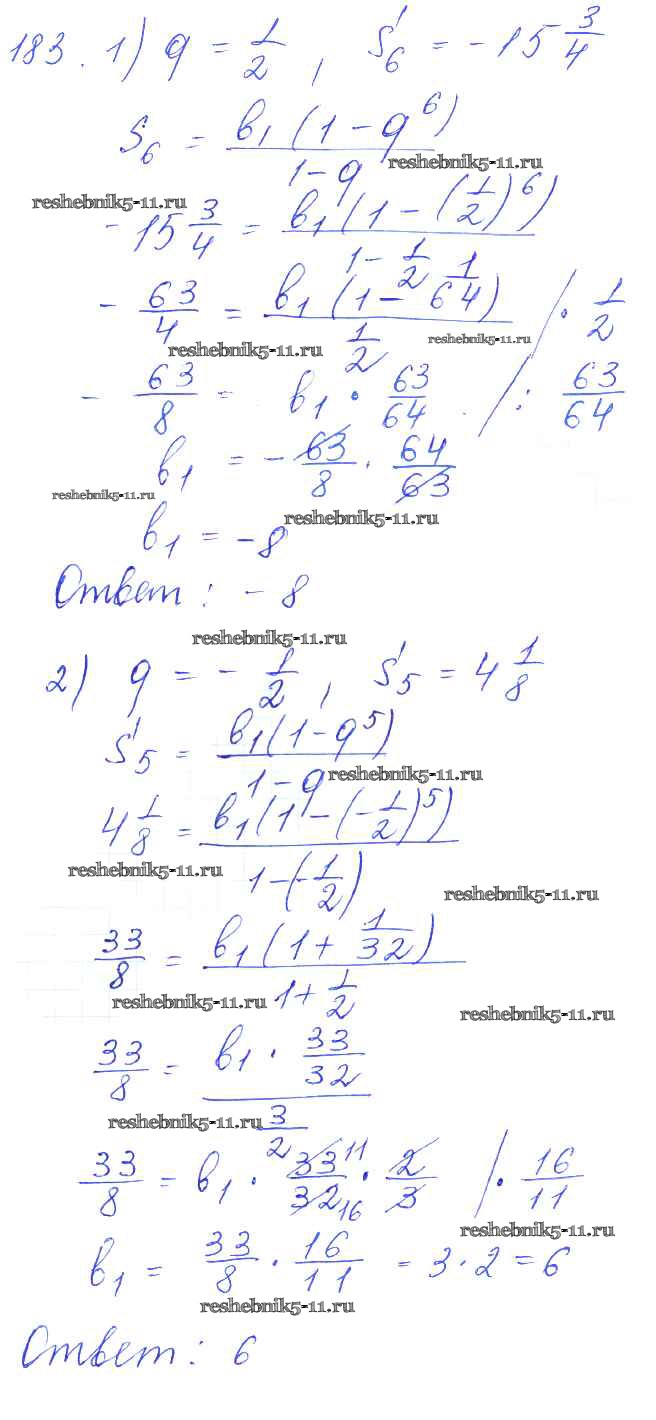 183. 1) q = 1/2, S6 = -15 3/4
S6 = b1(1-q^6) / 1-q
reshebnik5-11.ru
reshebnik5-11.ru
-15 3/4 = b1(1-(1/2)^6) / 1-1/2
-63/4 = b1(1-1/64) / 1/2 /· 1/2
reshebnik5-11.ru
reshebnik5-11.ru
-63/8 = b1 · 63/64 /: 63/64
b1 = -63/8 · 64/63
reshebnik5-11.ru
reshebnik5-11.ru
b1 = -8
Ответ: -8
reshebnik5-11.ru
2) q = -1/2, S5 = 4 1/8
S5 = b1(1-q^5) / 1-q
reshebnik5-11.ru
4 1/8 = b1(1-(-1/2)^5) / 1-(-1/2)
reshebnik5-11.ru
reshebnik5-11.ru
33/8 = b1(1+1/32) / 1+1/2
reshebnik5-11.ru
reshebnik5-11.ru
33/8 = b1 · 33/32 / 3/2
reshebnik5-11.ru
33/8 = b1 · 33 11/32 16 · 2/3 /· 16/11
reshebnik5-11.ru
b1 = 33/8 · 16/11 = 3·2 = 6
reshebnik5-11.ru
Ответ: 6